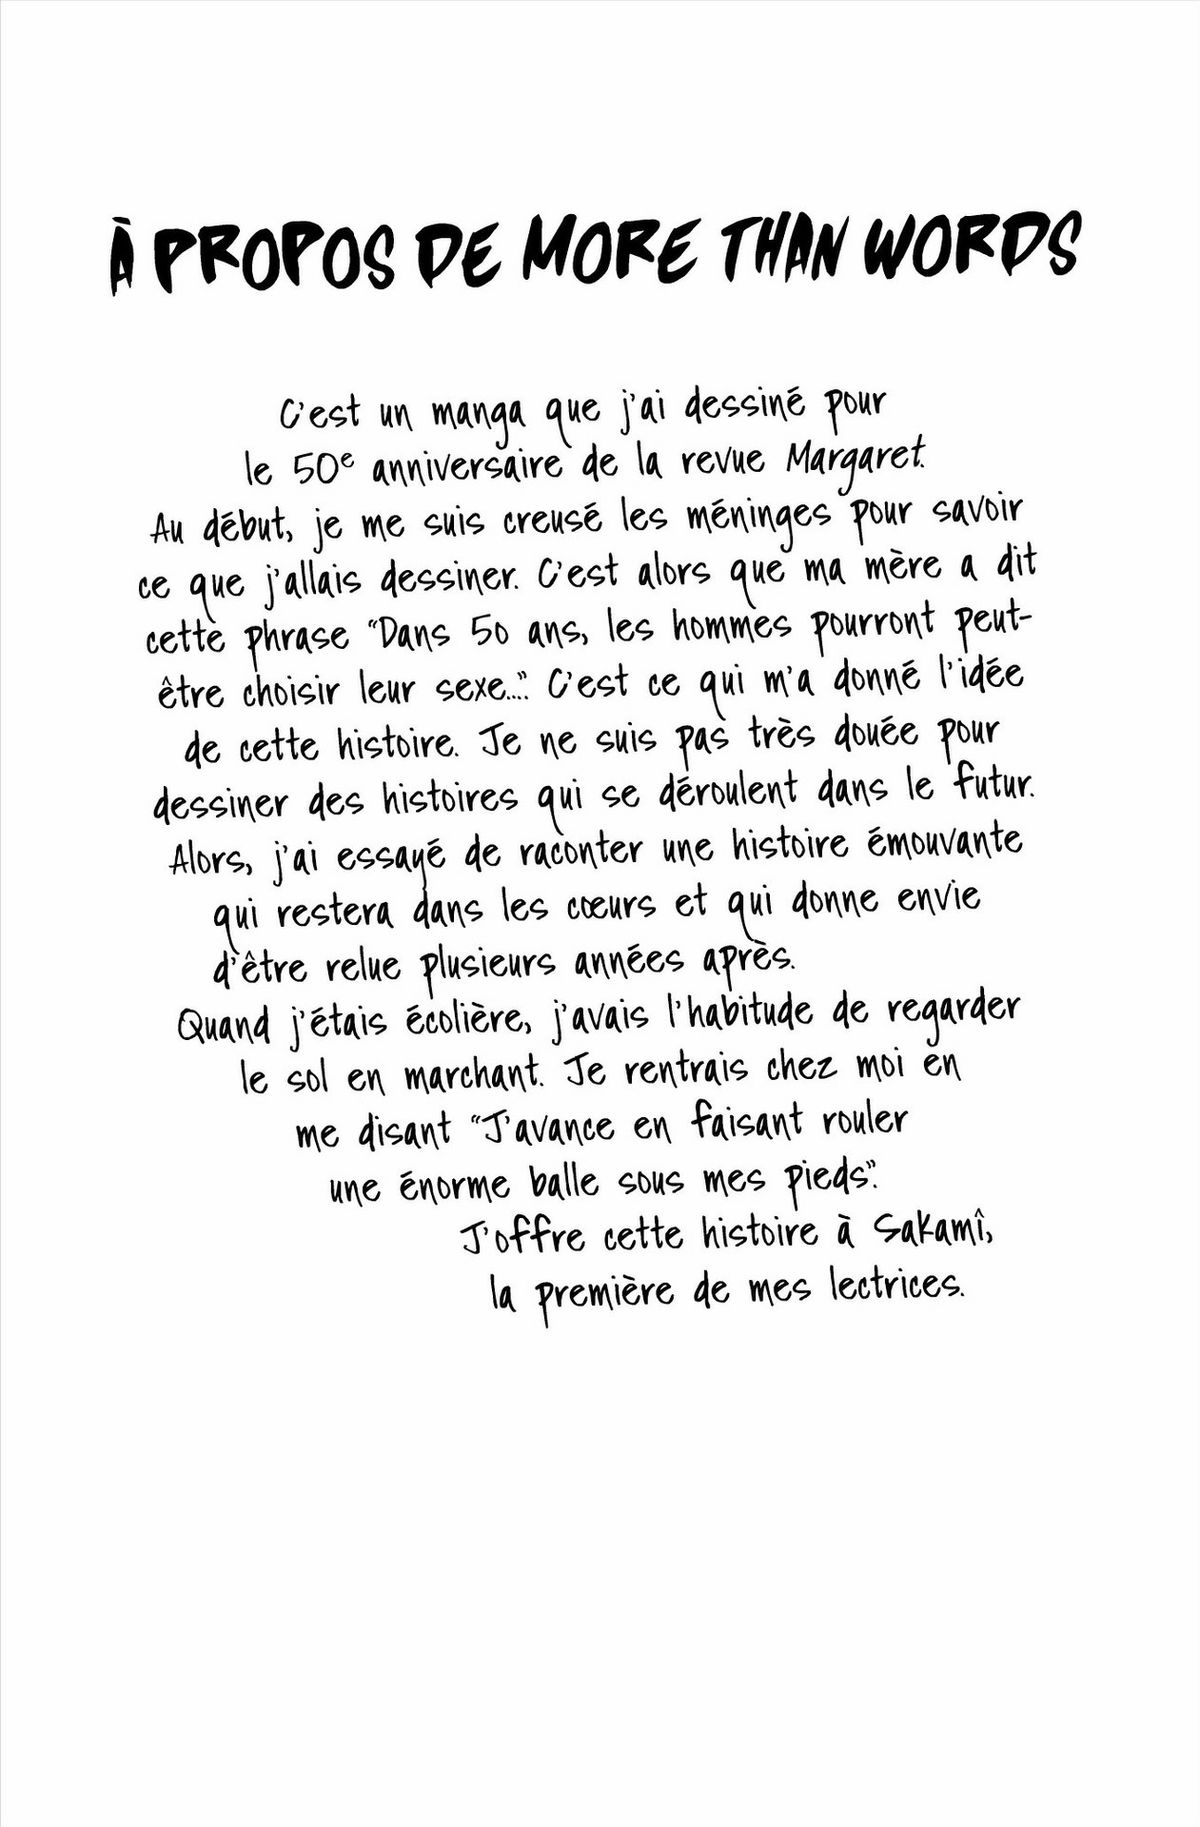 À PROPOS DE MORE THAN WORDS
C'est un manga que j'ai dessiné pour
le 50e anniversaire de la revue Margaret.
Au début, je me suis creusé les méninges pour savoir
ce que j'allais dessiner. C'est alors que ma mère a dit
cette phrase "Dans 50 ans, les hommes pourront peut-
être choisir leur sexe...". C'est ce qui m'a donné l'idée
de cette histoire. Je ne suis pas très douée pour
dessiner des histoires qui se déroulent dans le futur.
Alors, j'ai essayé de raconter une histoire émouvante
qui restera dans les cœurs et qui donne envie
d'être relue plusieurs années après.
Quand j'étais écolière, j'avais l'habitude de regarder
le sol en marchant. Je rentrais chez moi en
me disant "J'avance en faisant rouler
une énorme balle sous mes pieds".
J'offre cette histoire à Sakamî,
la première de mes lectrices.